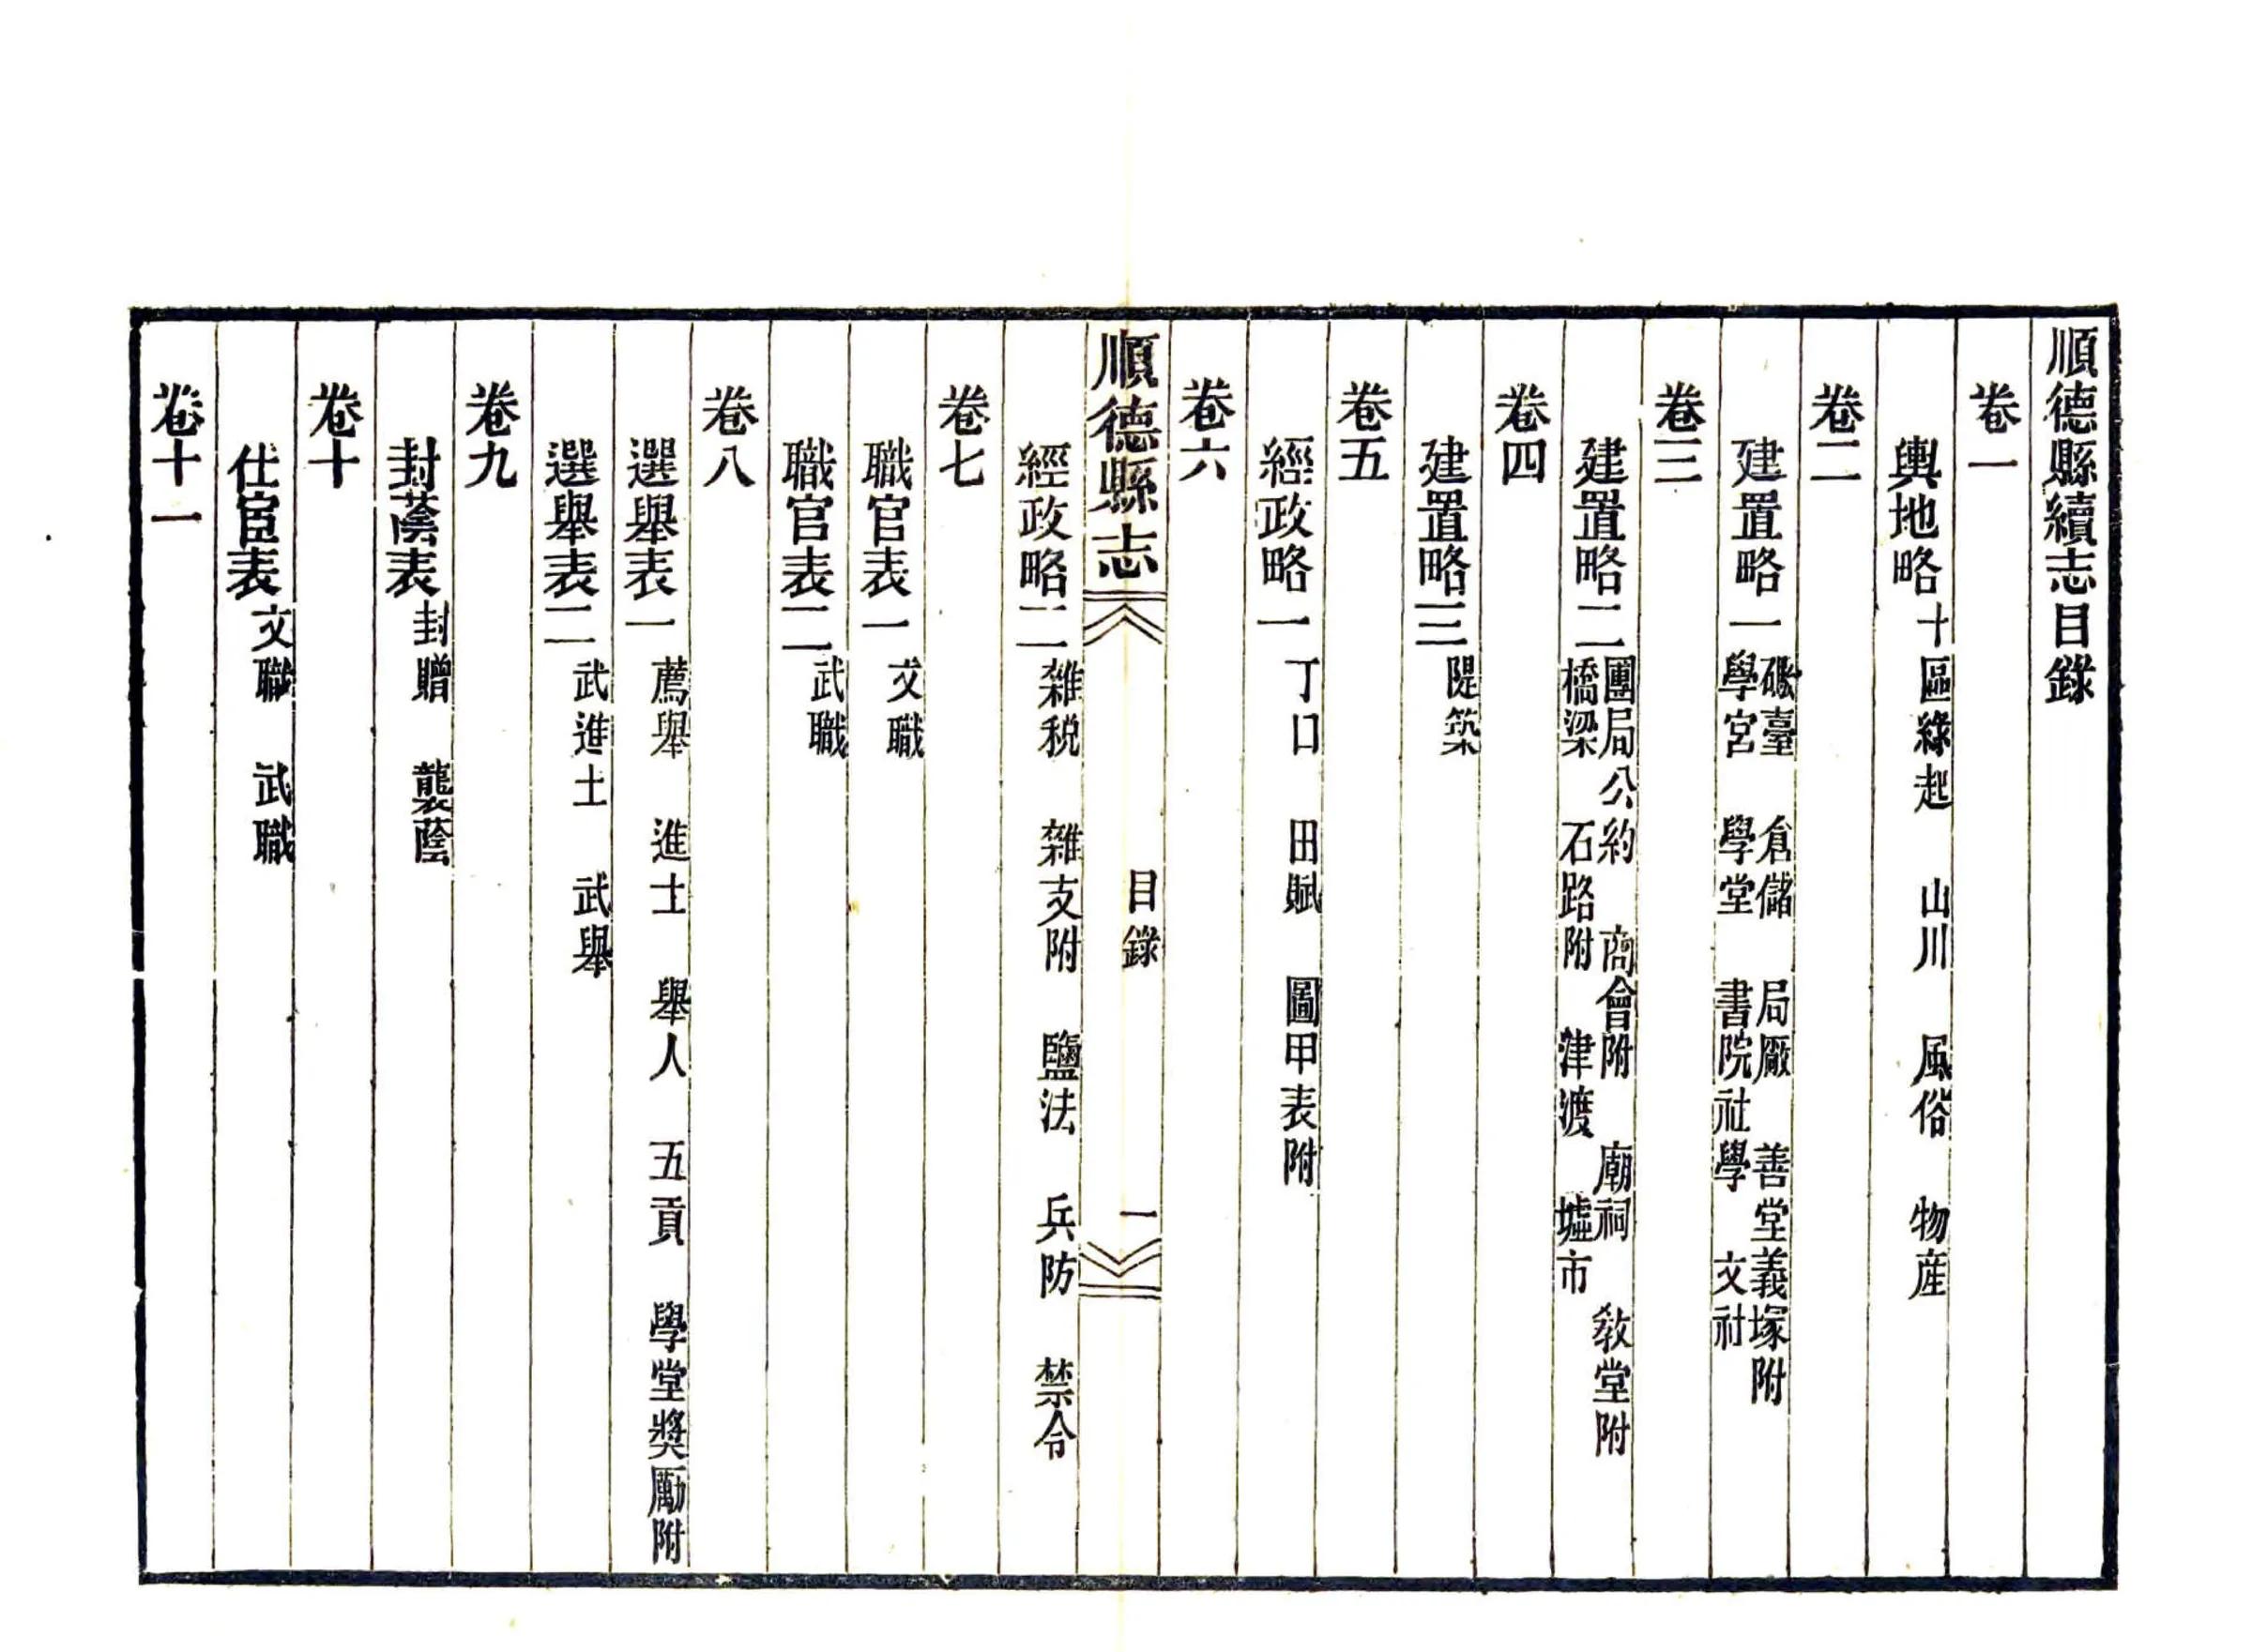 順德縣續志目錄
卷一
輿地略 十區緣起 山川 風俗 物産
卷二
建置略一 礮臺 倉儲 局廠 善堂義塚附
學宮 學堂 書院社學 文社
卷三
建置略二 團局公約 商會附 廟祠 敎堂附
橋梁 石路附 津渡 墟市
卷四
建置略三 隄築
卷五
經政略一 丁口 田賦 圖甲表附
卷六
順德縣志 目錄 一
經政略二 雜税 雜支附 鹽法 兵防 禁令
卷七
職官表一 文職
職官表二 武職
卷八
選舉表一 薦舉 進士 舉人 五貢 學堂獎勵附
選舉表二 武進士 武舉
卷九
封蔭表 封贈 襲蔭
卷十
仕宦表 文職 武職
卷十一